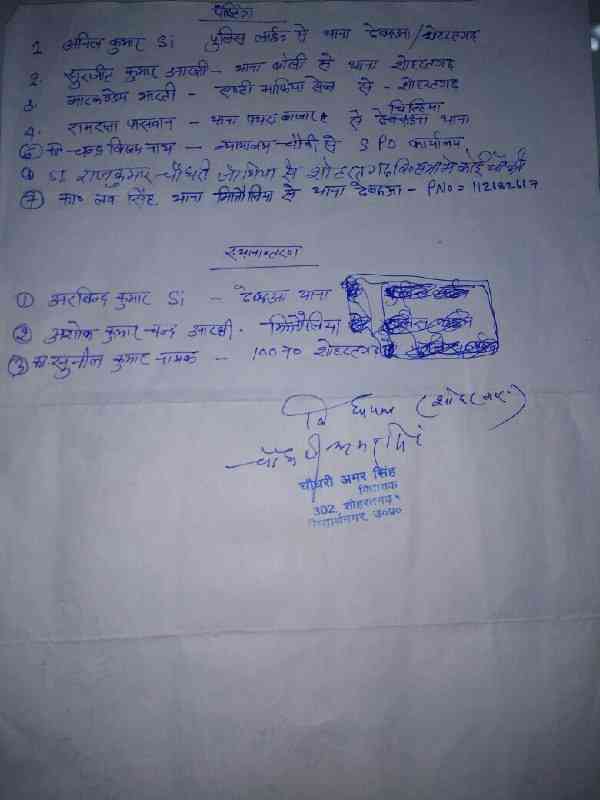 पोस्टिंग
1. अनिल कुमार Si पुलिस लाईन से थाना ढेबरुआ/शोहरतगढ़
2. सुरजीत कुमार आरक्षी - थाना बांसी से थाना शोहरतगढ़
3. मारकण्डेय भारती - एण्टी माफिया सेल से - शोहरतगढ़
4. रामदास पासवान - थाना पथरा बाजार से थाना
5 चन्द्र विजय नाथ - न्यायालय चौकी से SPO कार्यालय
6 SI राजकुमार चौधरी से शोहरतगढ़ कोई चौकी
7 का० लव सिंह थाना से थाना ढेबरुआ - PNo = 112182617
स्थानान्तरण
① अरविन्द कुमार Si - ढेबरुआ थाना
② अशोक कुमार चन्द आरक्षी -
③ सुनील कुमार - शोहरतगढ़
विधायक (शोहरतगढ़)
चौधरी अमर सिंह
चौधरी अमर सिंह
विधायक
302, शोहरतगढ़
सिद्धार्थनगर, उ०प्र०